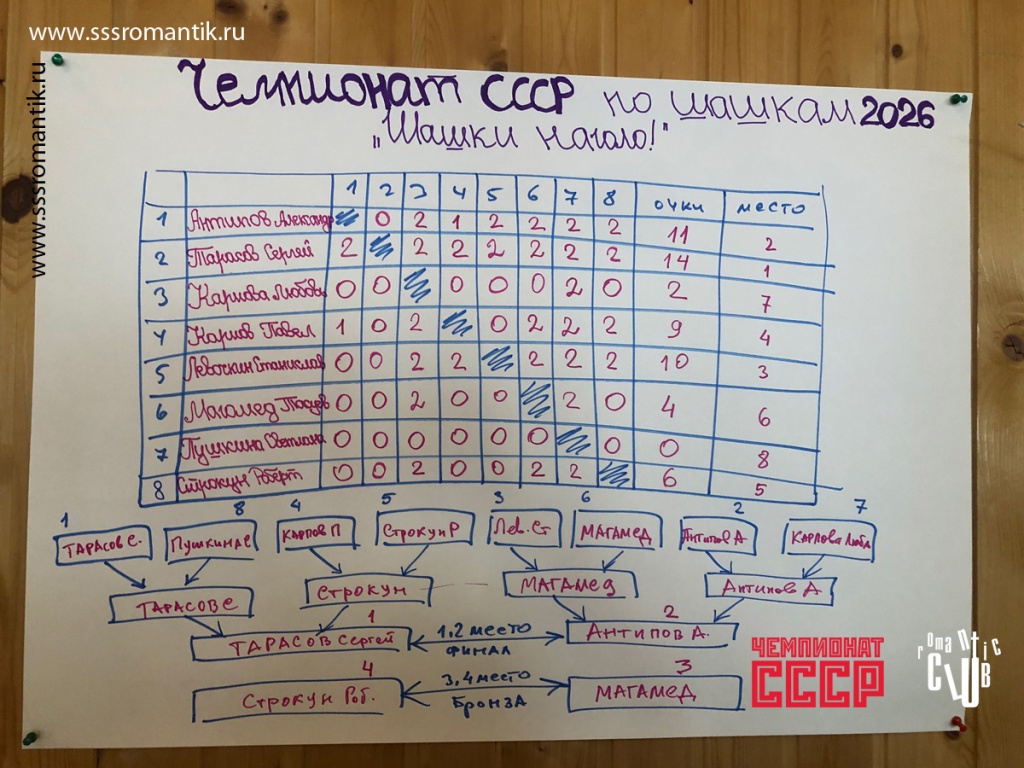 www.sssromantik.ru
www.sssromantik.ru
Чемпионат СССР по шашкам 2026
„Шашки наголо!"
1 2 3 4 5 6 7 8 очки место
1 Антипов Александр 0 2 1 2 2 2 2 11 2
2 Тарасов Сергей 2 2 2 2 2 2 2 14 1
3 Карпова Любовь 0 0 0 0 0 2 0 2 7
4 Карпов Павел 1 0 2 0 2 2 2 9 4
5 Левочкин Станислав 0 0 2 2 2 2 2 10 3
6 Магамед 0 0 2 0 0 2 0 4 6
7 Пушкина Светлана 0 0 0 0 0 0 0 0 8
8 Строкун Роберт 0 0 2 0 0 2 2 6 5
1 8 4 5 3 6 2 7
ТАРАСОВ С. ПУШКИНА С КАРПОВ П СТРОКУН Р Лев. Ст МАГАМЕД АНТИПОВ А КАРПОВА ЛЮБА
ТАРАСОВ С СТРОКУН МАГАМЕД АНТИПОВ А
1 2
ТАРАСОВ Сергей 1,2 место АНТИПОВ А.
ФИНАЛ
4 3
СТРОКУН РОБ. 3,4 место МАГАМЕД
БРОНЗА
ЧЕМПИОНАТ
СССР
romantic
CLUB